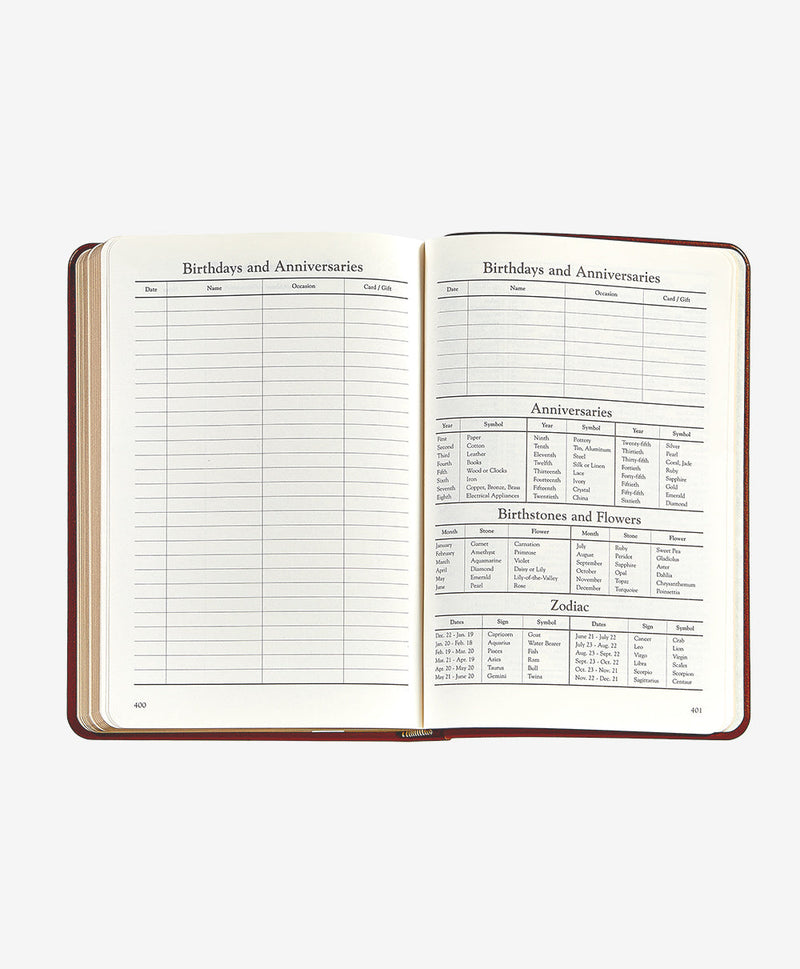 Birthdays and Anniversaries
Date Name Occasion Card / Gift
400
Birthdays and Anniversaries
Date Name Occasion Card / Gift
Anniversaries
Year Symbol Year Symbol Year Symbol
First Paper Ninth Pottery Twenty-fifth Silver
Second Cotton Tenth Tin, Aluminum Thirtieth Pearl
Third Leather Eleventh Steel Thirty-fifth Coral, Jade
Fourth Books Twelfth Silk or Linen Fortieth Ruby
Fifth Wood or Clocks Thirteenth Lace Forty-fifth Sapphire
Sixth Iron Fourteenth Ivory Fiftieth Gold
Seventh Copper, Bronze, Brass Fifteenth Crystal Fifty-fifth Emerald
Eighth Electrical Appliances Twentieth China Sixtieth Diamond
Birthstones and Flowers
Month Stone Flower Month Stone Flower
January Garnet Carnation July Ruby Sweet Pea
February Amethyst Primrose August Peridot Gladiolus
March Aquamarine Violet September Sapphire Aster
April Diamond Daisy or Lily October Opal Dahlia
May Emerald Lily-of-the-Valley November Topaz Chrysanthemum
June Pearl Rose December Turquoise Poinsettia
Zodiac
Dates Sign Symbol Dates Sign Symbol
Dec. 22 - Jan. 19 Capricorn Goat June 21 - July 22 Cancer Crab
Jan. 20 - Feb. 18 Aquarius Water Bearer July 23 - Aug. 22 Leo Lion
Feb. 19 - Mar. 20 Pisces Fish Aug. 23 - Sept. 22 Virgo Virgin
Mar. 21 - Apr. 19 Aries Ram Sept. 23 - Oct. 22 Libra Scales
Apr. 20 - May 20 Taurus Bull Oct. 23 - Nov. 21 Scorpio Scorpion
May 21 - June 20 Gemini Twins Nov. 22 - Dec. 21 Sagittarius Centaur
401